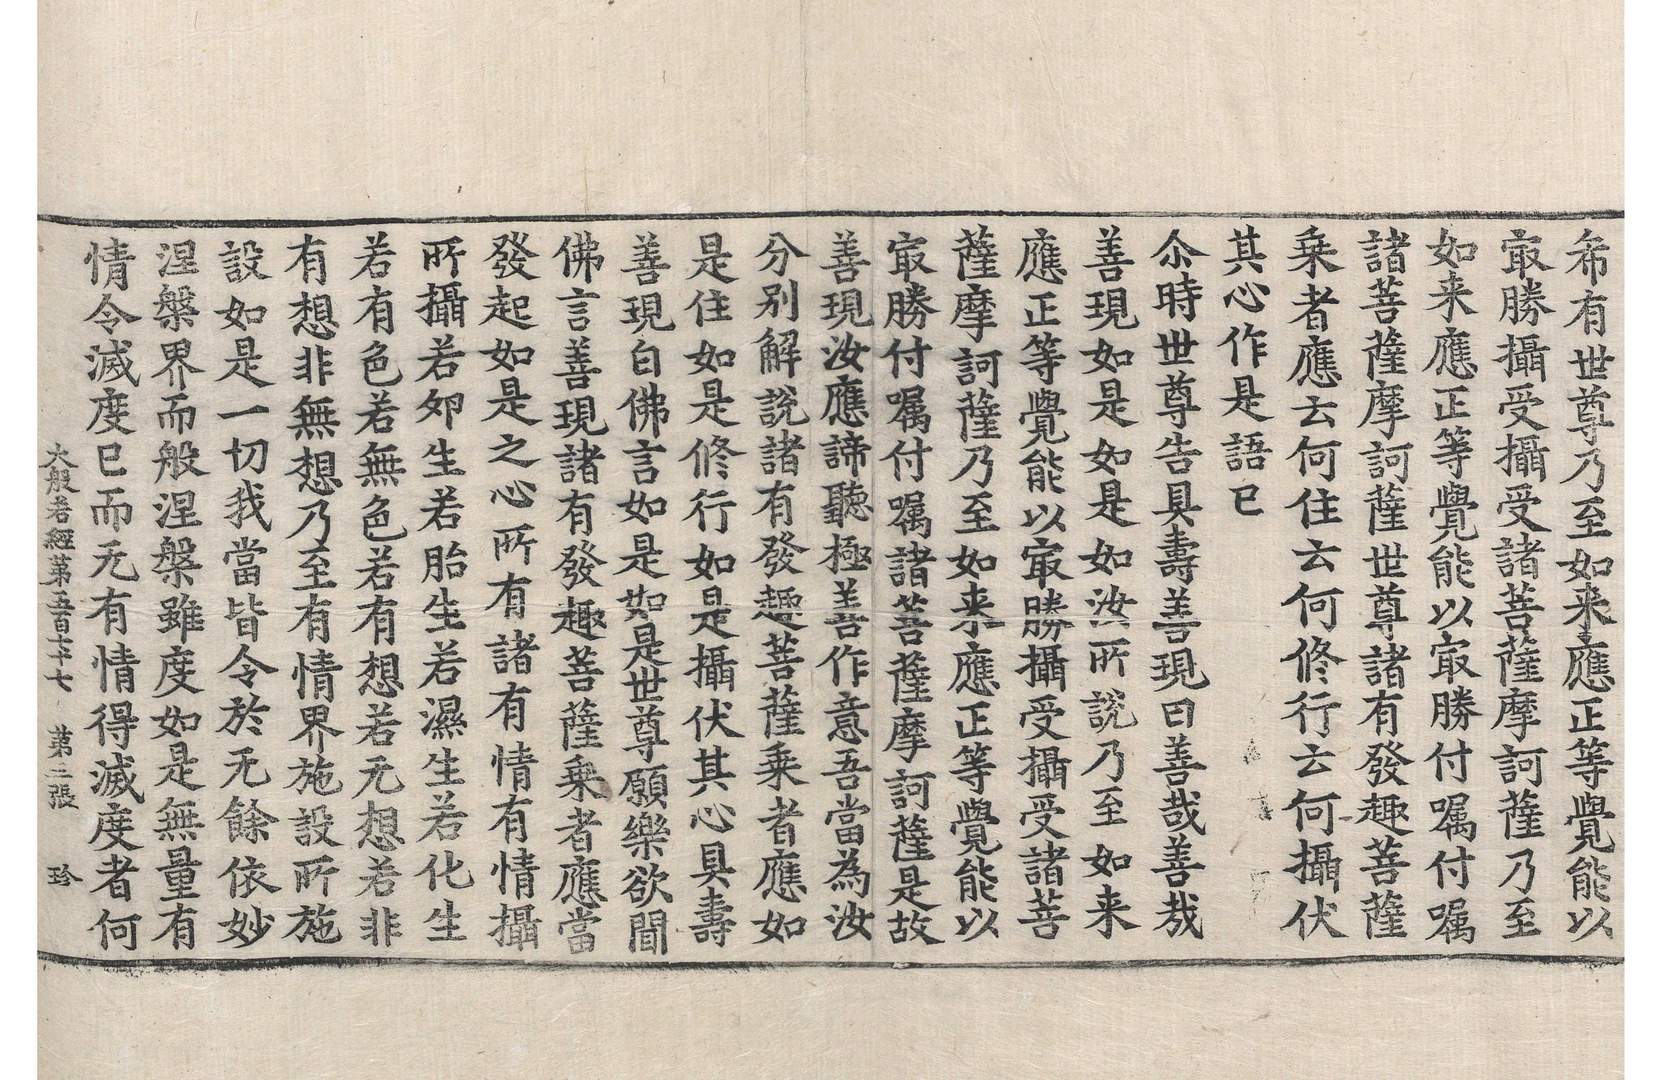 希有世尊乃至如来應正等覺能以
㝡勝攝受攝受諸菩薩摩訶薩乃至
如来應正等覺能以㝡勝付嘱付嘱
諸菩薩摩訶薩世尊諸有發趣菩薩
乗者應云何住云何修行云何攝伏
其心作是語已
尒時世尊告具壽善現曰善哉善哉
善現如是如是如汝所說乃至如来
應正等覺能以㝡勝攝受攝受諸菩
薩摩訶薩乃至如来應正等覺能以
㝡勝付嘱付嘱諸菩薩摩訶薩是故
善現汝應諦聽極善作意吾當為汝
分别解說諸有發趣菩薩乗者應如
是住如是修行如是攝伏其心具壽
善現白佛言如是如是世尊願樂欲聞
佛言善現諸有發趣菩薩乗者應當
發起如是之心所有諸有情有情攝
所攝若卵生若胎生若濕生若化生
若有色若無色若有想若无想若非
有想非無想乃至有情界施設所施
設如是一切我當皆令於无餘依妙
涅槃界而般涅槃雖度如是無量有
情令滅度已而无有情得滅度者何
大般若經第五百七十七 第三張 珍